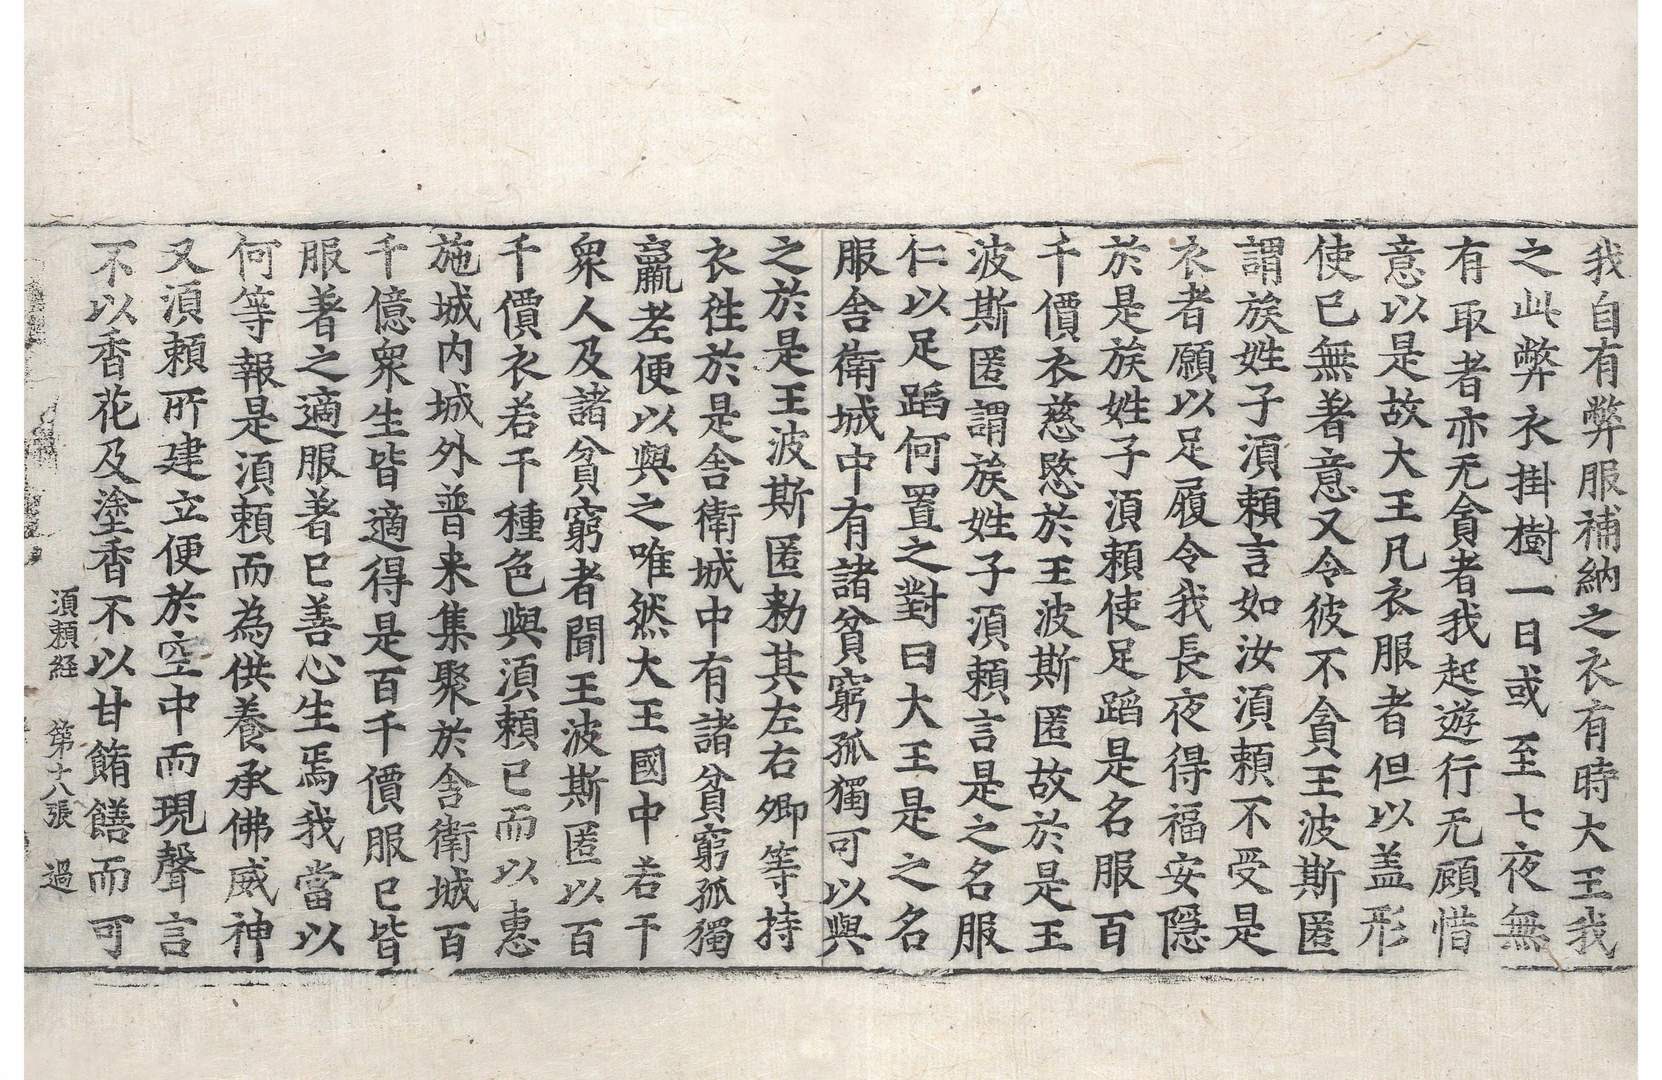 我自有弊服補納之衣有時大王我
之此弊衣掛樹一日或至七夜無
有取者亦无貪者我起遊行无顧惜
意以是故大王凡衣服者但以盖形
使已無著意又令彼不貪王波斯匿
謂族姓子湏賴言如汝湏賴不受是
衣者願以足履令我長夜得福安隱
於是族姓子湏賴使足蹈是名服百
千價衣慈愍於王波斯匿故於是王
波斯匿謂族姓子湏賴言是之名服
仁以足蹈何置之對曰大王是之名
服舎衛城中有諸貧窮孤獨可以與
之於是王波斯匿勑其左右卿等持
衣往於是舎衛城中有諸貧窮孤獨
羸老便以與之唯然大王國中若干
衆人及諸貧窮者聞王波斯匿以百
千價衣若干種色與湏賴已而以惠
施城内城外普来集聚於舎衛城百
千億衆生皆適得是百千價服已皆
服著之適服著已善心生焉我當以
何等報是湏賴而為供養承佛威神
又湏賴所建立便於空中而現聲言
不以香花及塗香不以甘餚饍而可
湏賴経 第十八張 過